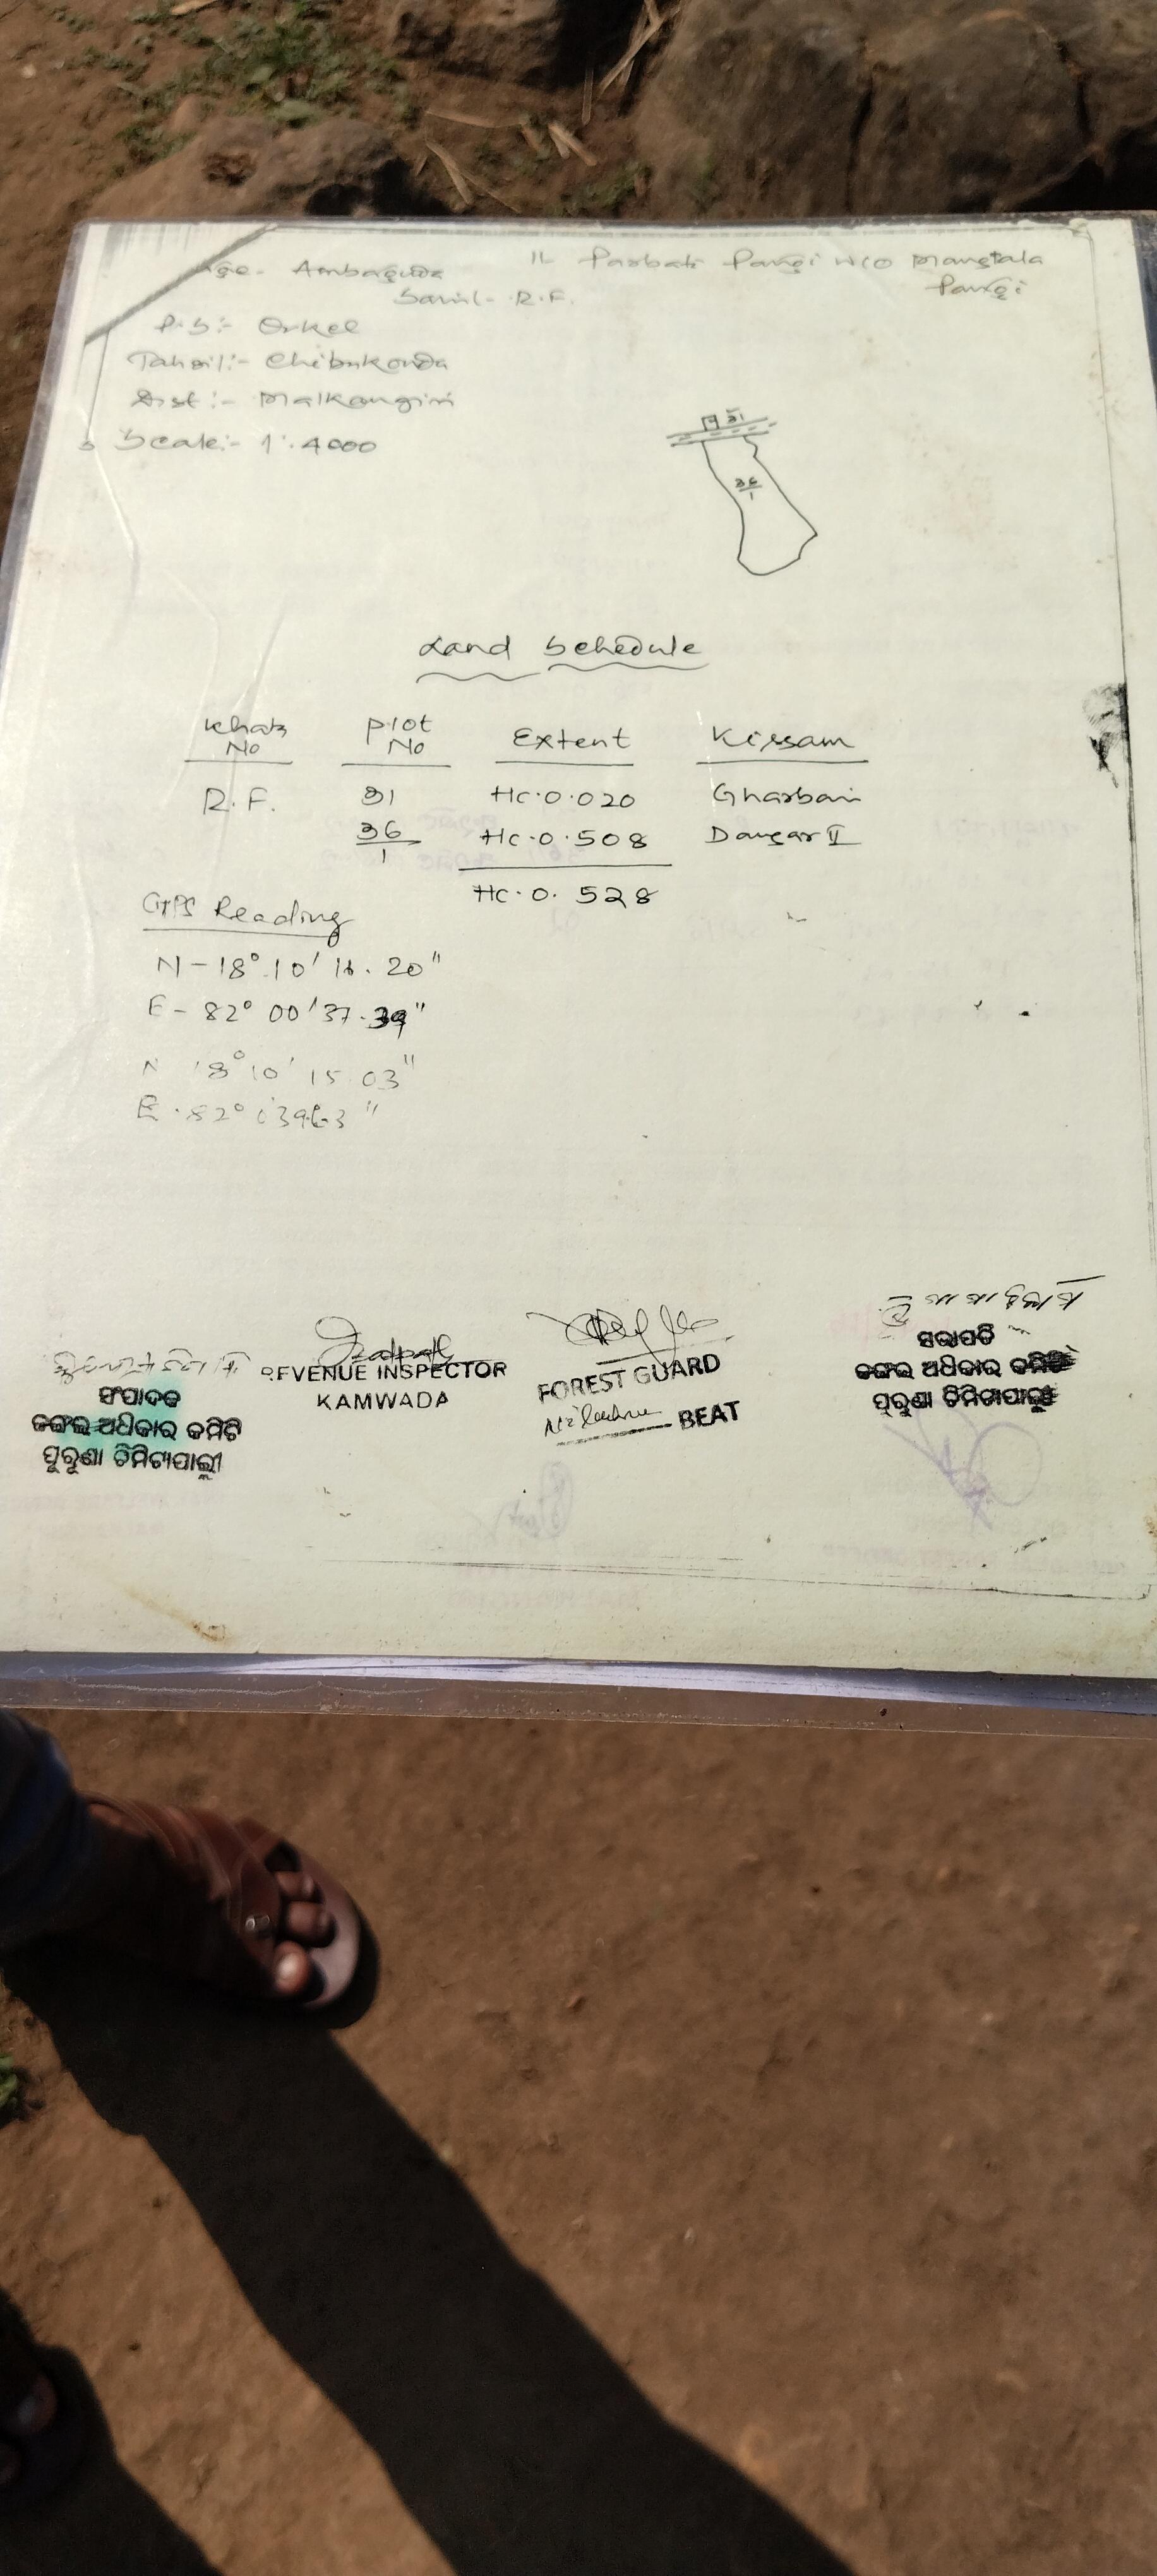 Ambaguda
11 Parbati Pangi W/O Mangtala
Pangi
R.F.
P.S:- Orkel
Tahsil:- Chitrakonda
Dist:- Malkangiri
Scale:- 1:4000
31
36/1
Land Schedule
Khata No Plot No Extent Kissam
R.F. 31 Hc.0.020 Gharbari
36/1 Hc.0.508 Dangar II
Hc.0.528
GPS Reading
N-18° 10' 16.20"
E- 82° 00' 37.39"
N 18° 10' 15.03"
E 82°
ସଂପାଦକ
ଜଙ୍ଗଲ ଅଧିକାର କମିଟି
ପୁରୁଣା ଚିମିଟାପାଲ୍ଲୀ
REVENUE INSPECTOR
KAMWADA
FOREST GUARD
BEAT
ସଭାପତି
ଜଙ୍ଗଲ ଅଧିକାର କମିଟି
ପୁରୁଣା ଚିମିଟାପାଲ୍ଲୀ